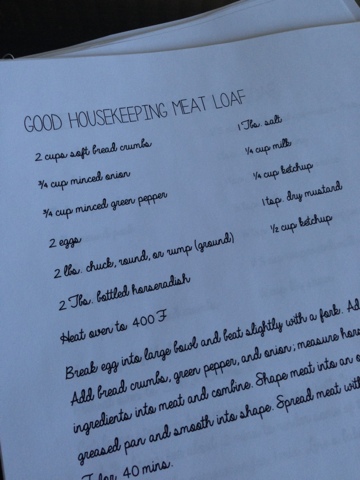 GOOD HOUSEKEEPING MEAT LOAF
2 cups soft bread crumbs
¾ cup minced onion
¾ cup minced green pepper
2 eggs
2 lbs. chuck, round, or rump (ground)
2 Tbs. bottled horseradish
1 Tbs. salt
¼ cup milk
¼ cup ketchup
1 tsp. dry mustard
½ cup ketchup
Heat oven to 400 F
Break egg into large bowl and beat slightly with a fork.
Add bread crumbs, green pepper, and onion; measure
ingredients into meat and combine. Shape meat into an
greased pan and smooth into shape. Spread meat
for 40 mins.